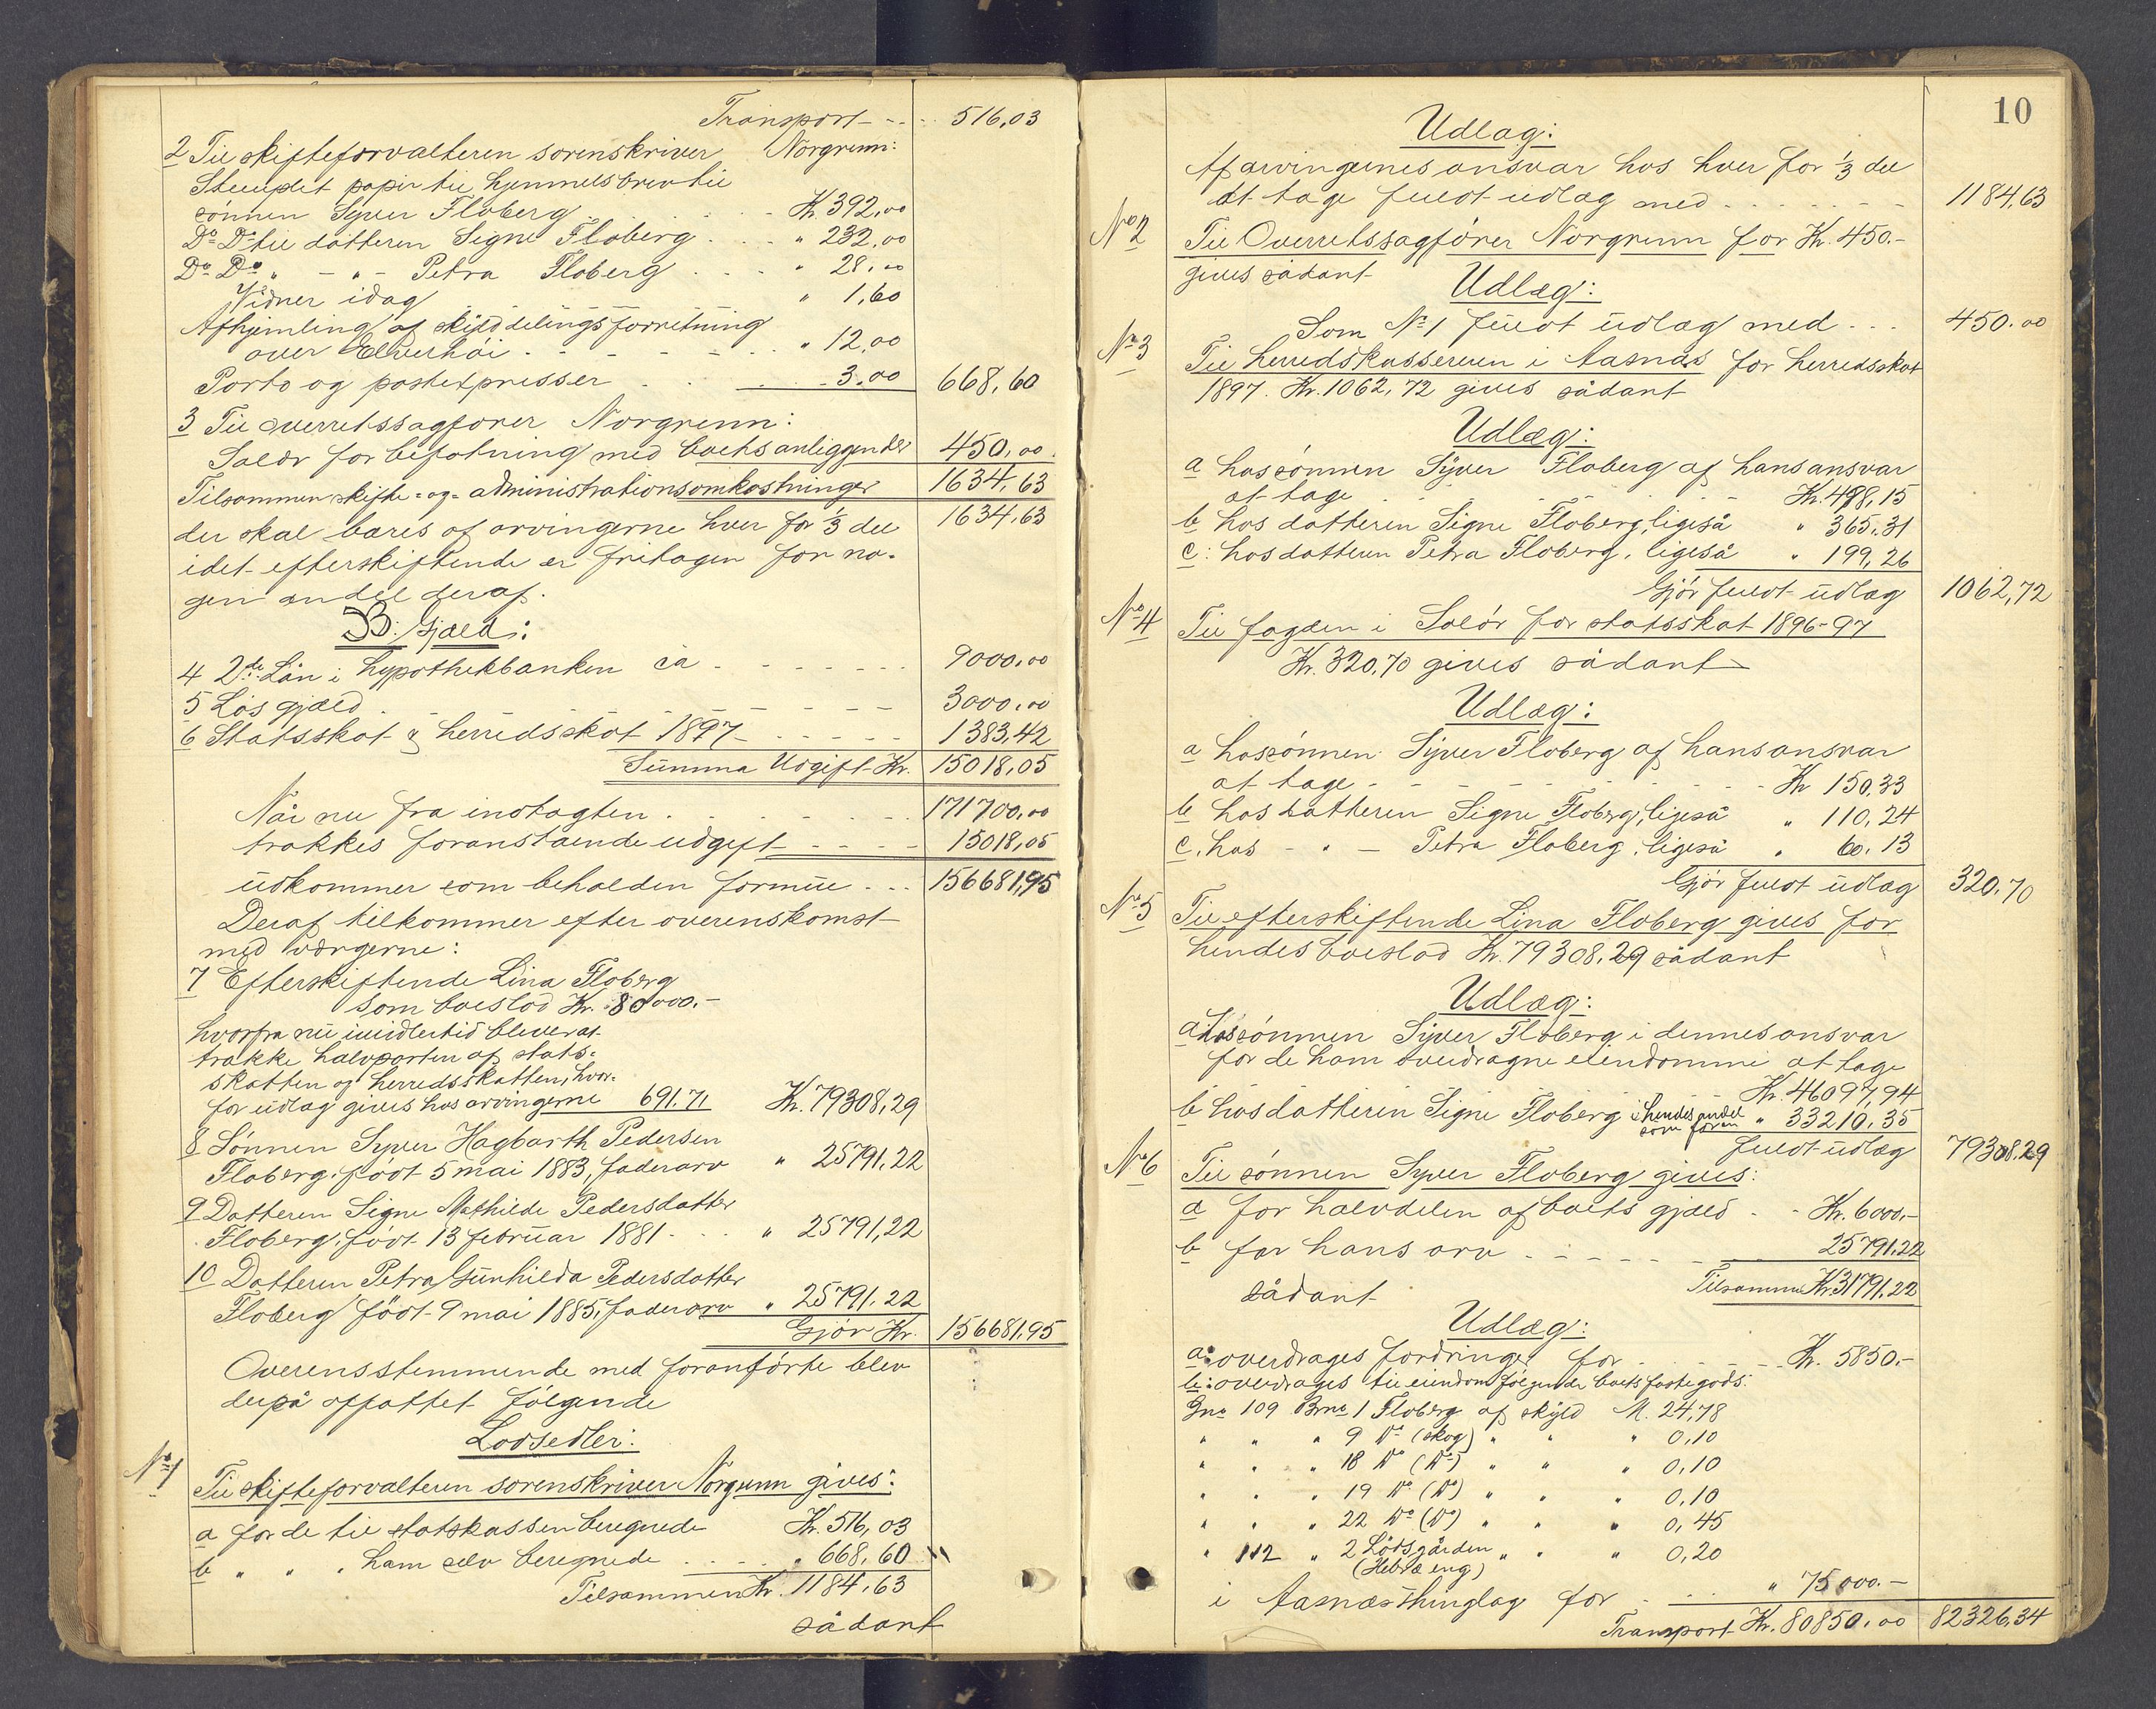 Transport - - - 516,03
2 Til skifteforvalteren sorenskriver Norgrenn:
Stemplet papir til hjemmelsbrev til
sønnen Syver Floberg . . . . Kr. 392,00
Do Do til datteren Signe Floberg . . . " 232,00
Do Do " - " - Petra Floberg . . . " 28,00
Vidner idag " 1,60
Afhjemling af skylddelingsforretning
over Elverhøi . - - - - . . " 12,00
Porto og postexpresser . . . 3,00 668,60
3 Til overretssagfører Norgrenn:
Salær for befatning med boets anliggender 450,00
Tilsammen skifte- og administrationsomkostninger 1634,63
der skal bæres af arvingerne hver for 1/3 del 1634,63
idet efterskiftende er fritagen for no-
gen andel deraf.
B. Gjæld:
4 2de Lån i hypothekbanken ca - - - - 9000,00
5 Løs gjæld . - - - - - - 3000,00
6 Statsskat & herredsskat 1897 - - - - - 1383,42
Summa Udgift Kr. 15018,05
Når nu fra indtægten . . . . . 171700,00
trækkes foranstående udgift - - - - 15018,05
udkommer som beholden formue . . . 156681,95
Deraf tilkommer efter overenskomst
med værgerne:
7 Efterskiftende Lina Floberg
som boeslod Kr. 80000.-
hvorfra nu imidlertid bliver at
trække halvparten af stats-
skatten og herredsskatten, hvor-
for udlæg gives hos arvingerne 691.71 Kr. 79308,29
8 Sønnen Syver Hagbarth Pedersen
Floberg, født 5 mai 1883, faderarv " 25791,22
9 Datteren Signe Mathilde Pedersdatter
Floberg, født 13 februar 1881 - . . . " 25791,22
10 Datteren Petra Gunhilda Pedersdatter
Floberg født 9 mai 1885, faderarv " 25791.22
Gjør Kr. 156681,95
Overensstemmende med foranførte blev
derpå affattet følgende
Lodsedler:
No 1
Til skifteforvalteren sorenskriver Norgrenn gives:
a for de til statskassen beregnede Kr. 516,03
b " " " ham selv beregnede . . . . " 668,60
Tilsammen Kr. 1184,63
sådant
10
Udlæg:
Af arvingernes ansvar hos hver for 1/3 del
at tage fuldt udlæg med . . . . . - - 1184,63
No 2
Til Overretssagfører Norgrenn for Kr. 450.-
gives sådant
Udlæg:
Som No 1 fuldt udlæg med . . . 450.00
No 3
Til herredskassereren i Aasnæs for herredsskat
1897. Kr. 1062,72 gives sådant
Udlæg:
a hos sønnen Syver Floberg af hans ansvar
at tage . . . . . - - Kr. 498,15
b hos datteren Signe Floberg, ligeså " 365,31
c: hos datteren Petra Floberg, ligeså " 199,26
Gjør fuldt udlæg 1062,72
No 4
Til fogden i Solør for statsskat 1896-97
Kr. 320,70 gives sådant
Udlæg:
a hos sønnen Syver Floberg af hans ansvar
at tage . - - - - - - Kr 150,33
b hos datteren Signe Floberg, ligeså " 110,24
c. hos - " - Petra Floberg, ligeså " 60,13
Gjør fuldt udlæg 320,70
No 5
Til efterskiftende Lina Floberg gives for
hendes boeslod Kr. 79308,29 sådant
Udlæg:
a Hos sønnen Syver Floberg i dennes ansvar
for de ham overdragne eiendomme at tage
Kr. 46097,94
b hos datteren Signe Floberg i hendes andel som foran " 33210,35
fuldt udlæg 79308.29
No 6
Til sønnen Syver Floberg gives:
a for halvdelen af boets gjæld - - Kr. 6000,-
b for hans arv . - - - - 25791.22
sådant Tilsammen Kr. 31791,22
Udlæg:
a: overdrages fordringer for . . . - - Kr. 5850.-
b: overdrages til eiendom følgende boets faste gods:
Gno 109 Brno 1 Floberg af skyld M. 24,78
" " " 9 Do (skog) " " " 0,10
" " " 18 Do (Do) " " " 0,10
" " " 19 Do (Do) " " " 0,10
" " " 22 Do (Do) " " " 0,45
" 112 " 2 Lødsgården " " " 0,20
(Hebræ eng)
i Aasnæs thinglag for . . . " 75000.-
Transport Kr. 80850.00 82326,34